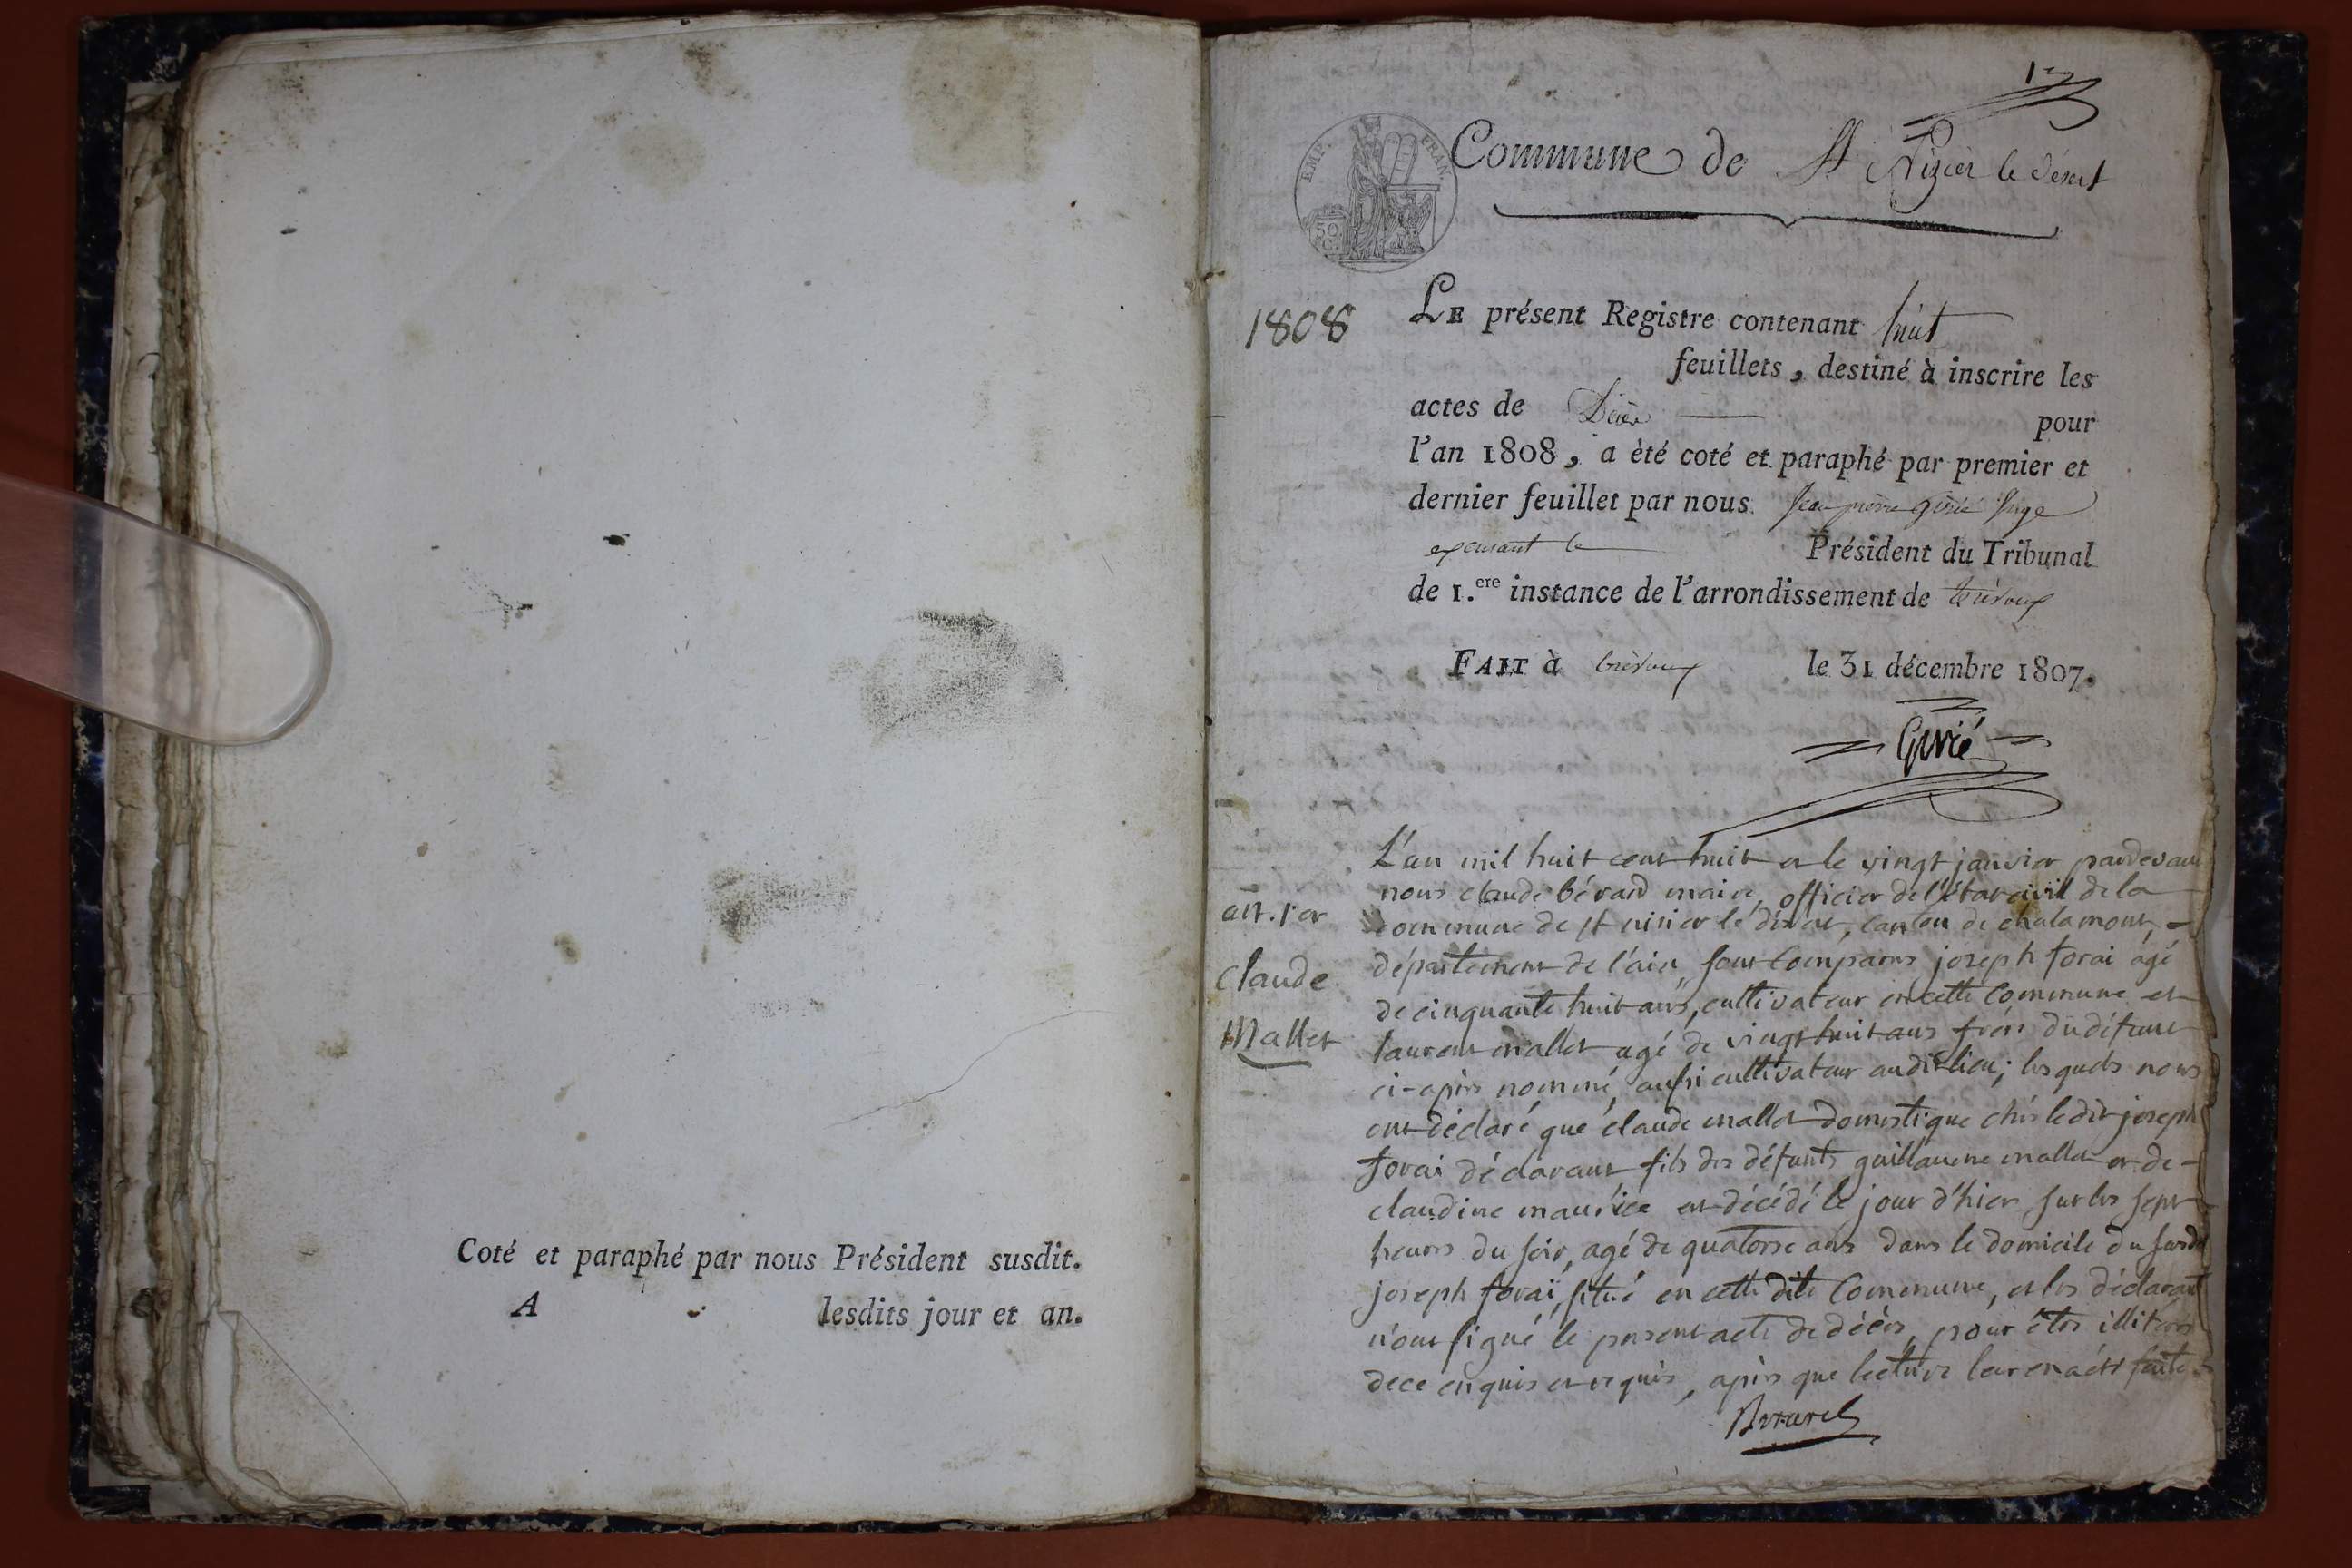 Coté et paraphé par nous Président susdit.
A lesdits jour et an.
1er
EMP. FRAN.
50 C.
Commune de St Nizier le désert
1808
LE présent Registre contenant huit
feuillets, destiné à inscrire les
actes de Décès pour
l'an 1808, a èté coté et paraphé par premier et
dernier feuillet par nous Jean pierre Girié Juge
exerçant le Président du Tribunal
de 1.ere instance de l'arrondissement de trévoux
FAIT à trévoux le 31 décembre 1807.
Girié
art. 1er
Claude
Mallet
L'an mil huit cent huit et le vingt janvier pardevant
nous claude bérard maire, officier de l'état civil de la
commune de st nisier le désert, canton de chalamont,
département de l'ain, sont Comparus joseph forai agé
de cinquante huit ans, cultivateur en cette Commune et
laurent mallet agé de vingt huit ans frère du défunt
ci-après nommé, aussi cultivateur audit lieu; lesquels nous
ont déclaré que claude mallet domestique chés ledit joseph
forai déclarant, fils des défunts guillaume mallet et de
claudine maurice est décédé le jour d'hier, sur les sept
heures du soir, agé de quatorse ans dans le domicile du susdit
joseph forai, situé en cette dite Commune, et les déclarant
n'ont signé le present acte de décès, pour être illiterés
de ce enquis et requis, après que lecture leur en a été faite
Berard